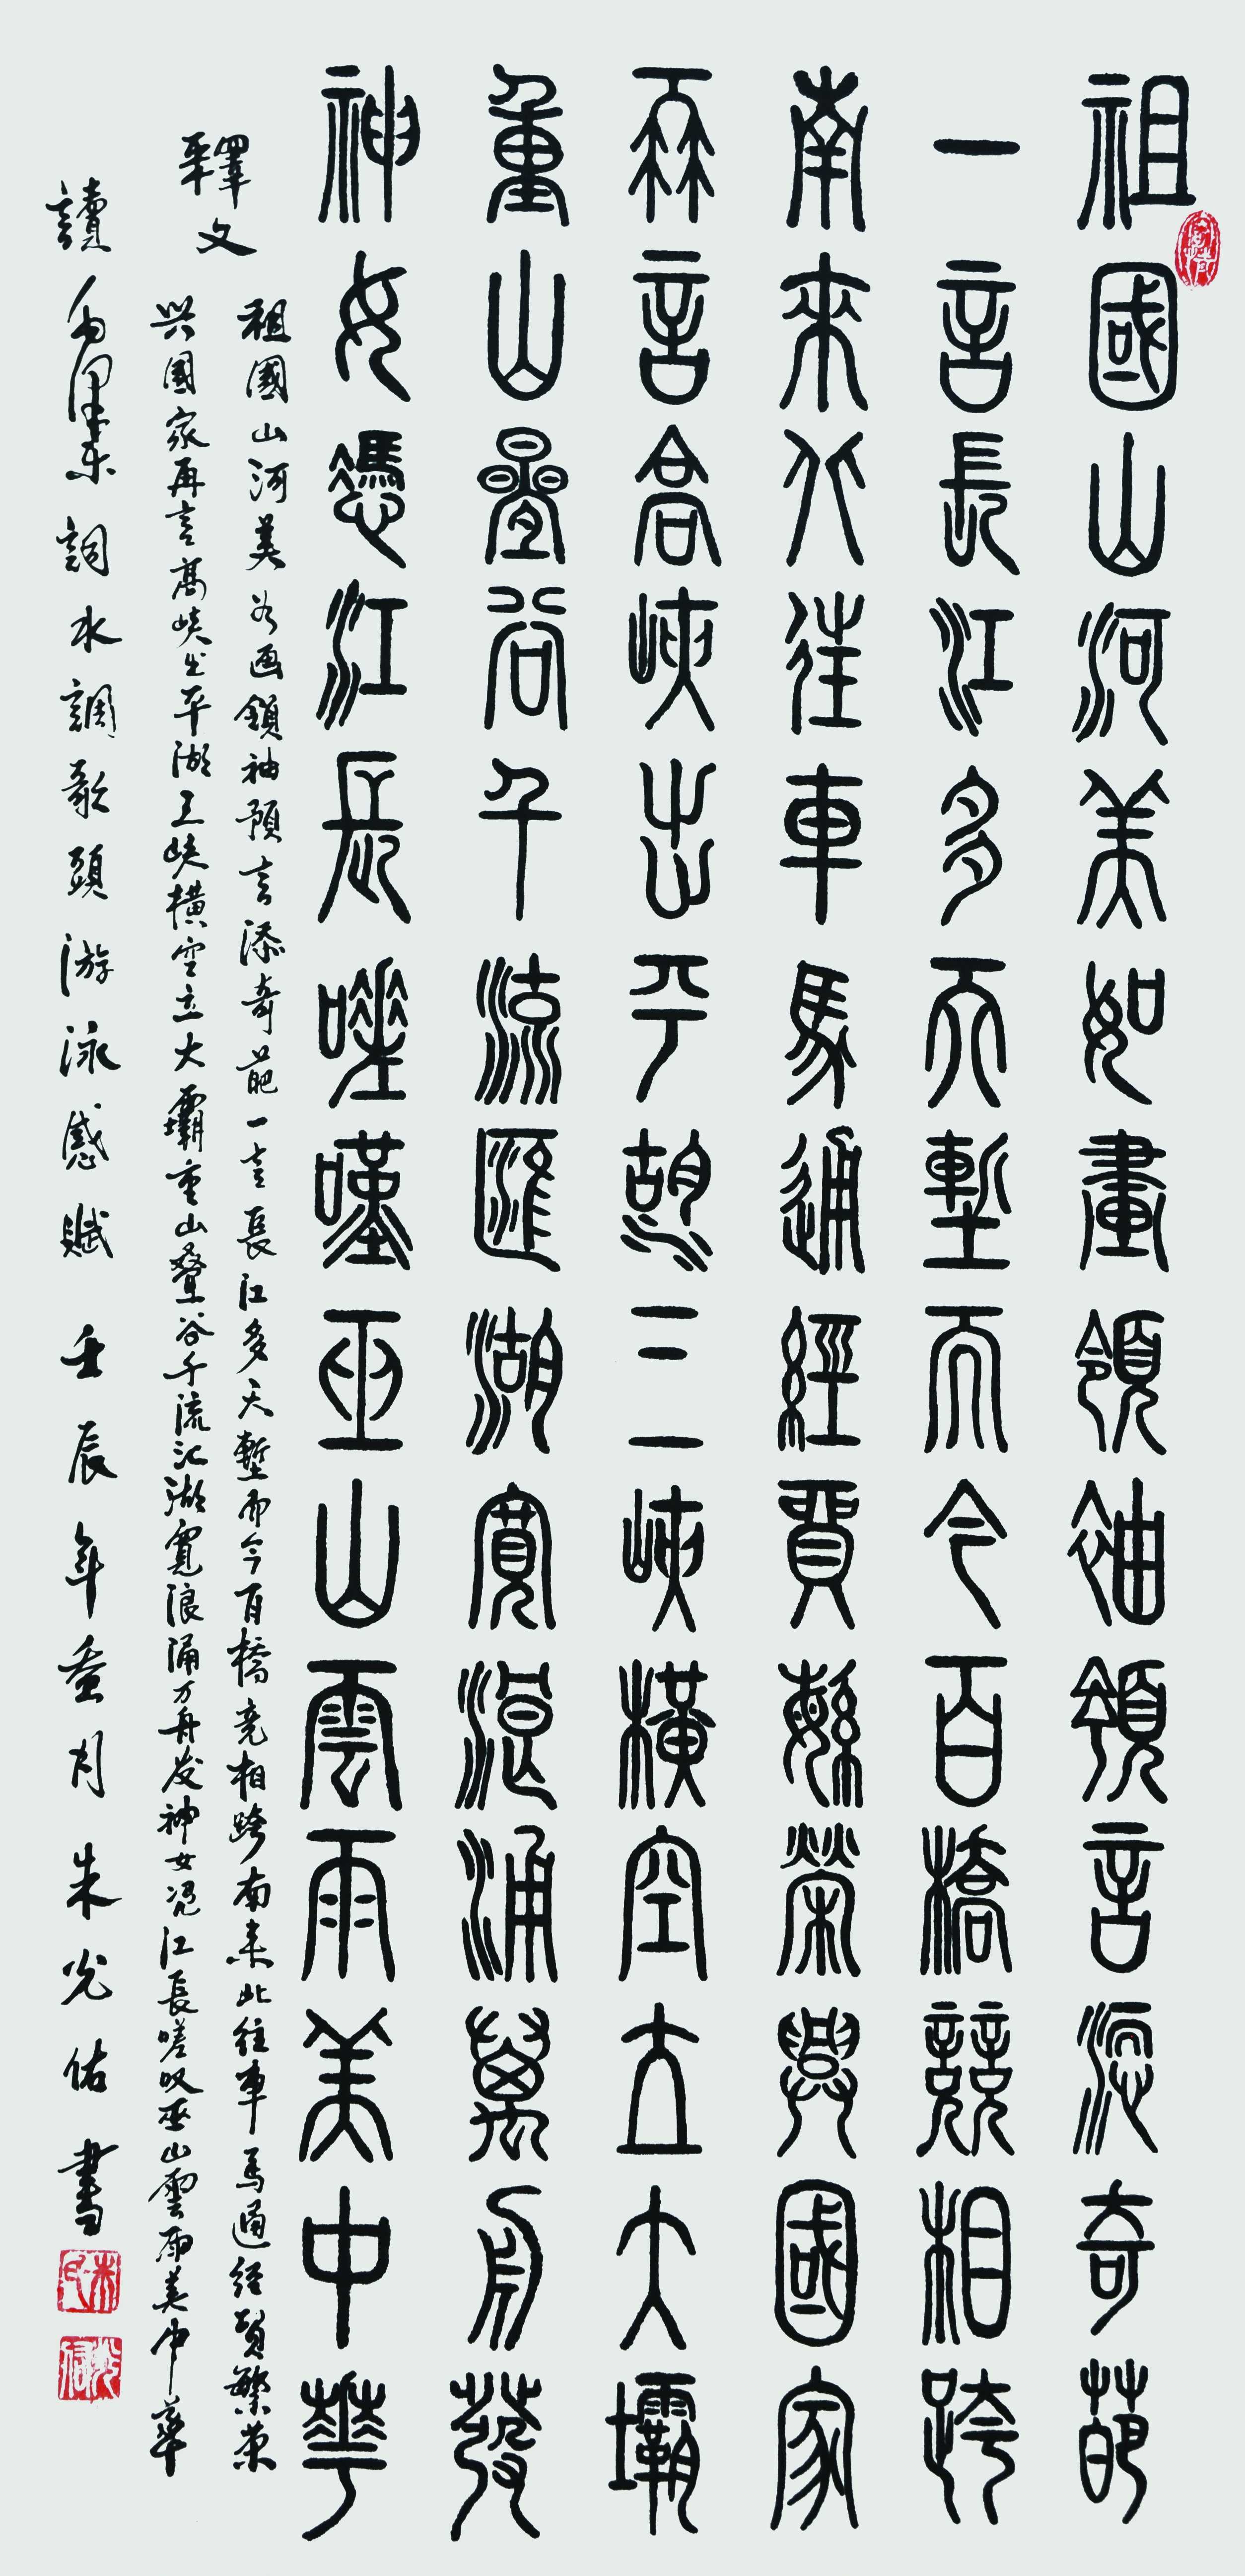 祖國山河美如畫領袖預言添奇葩
一言長江多天塹而今百橋競相跨
南來北往車馬通經貿繁榮興國家
再言高峽出平湖三峽橫空立大壩
重山疊谷千流匯湖寬浪涌萬舟發
神女憑江長嗟嘆巫山雲雨美中華
釋文
祖國山河美如画領袖預言添奇葩一言長江多天塹而今百橋竞相跨南来北往車馬通经贸繁荣
兴國家再言高峡出平湖三峡横空立大壩重山叠谷千流汇湖寬浪涌万舟发神女凭江長嗟叹巫山雲雨美中華
讀毛澤东詞水調歌頭游泳感賦 壬辰年月 朱光佑書